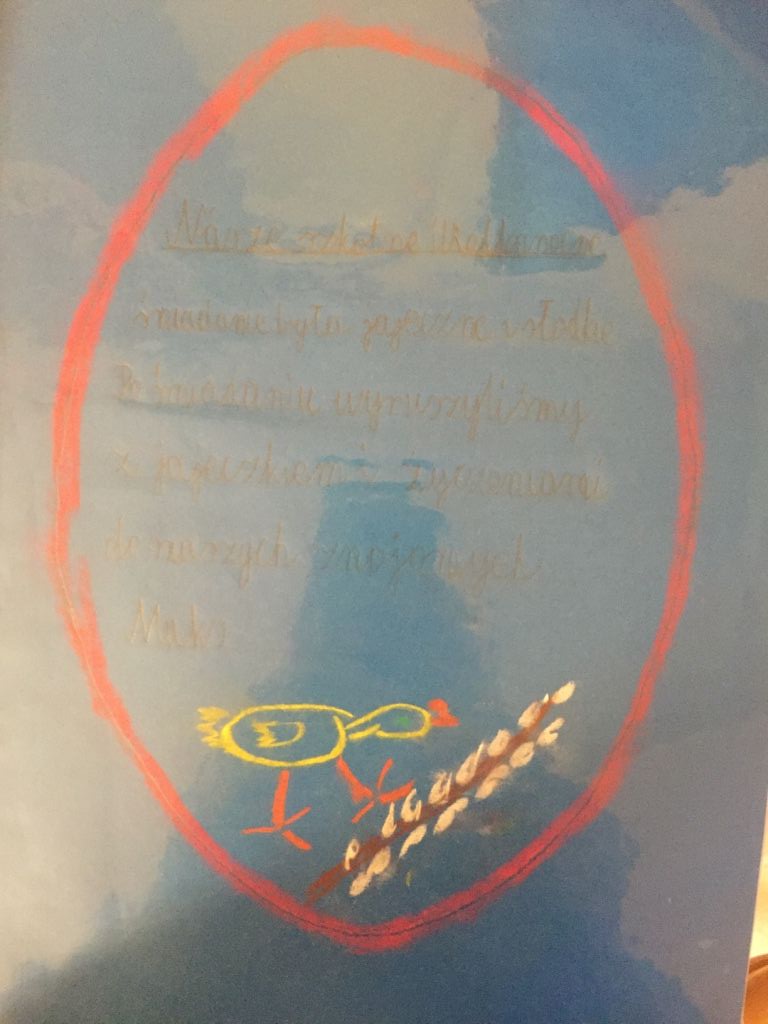 Nasze szkolne Wielkanocne
śniadanie było jajeczne i słodkie
Po śniadaniu wyruszyliśmy
z jajeczkiem i życzeniami
do naszych znajomych
Maks